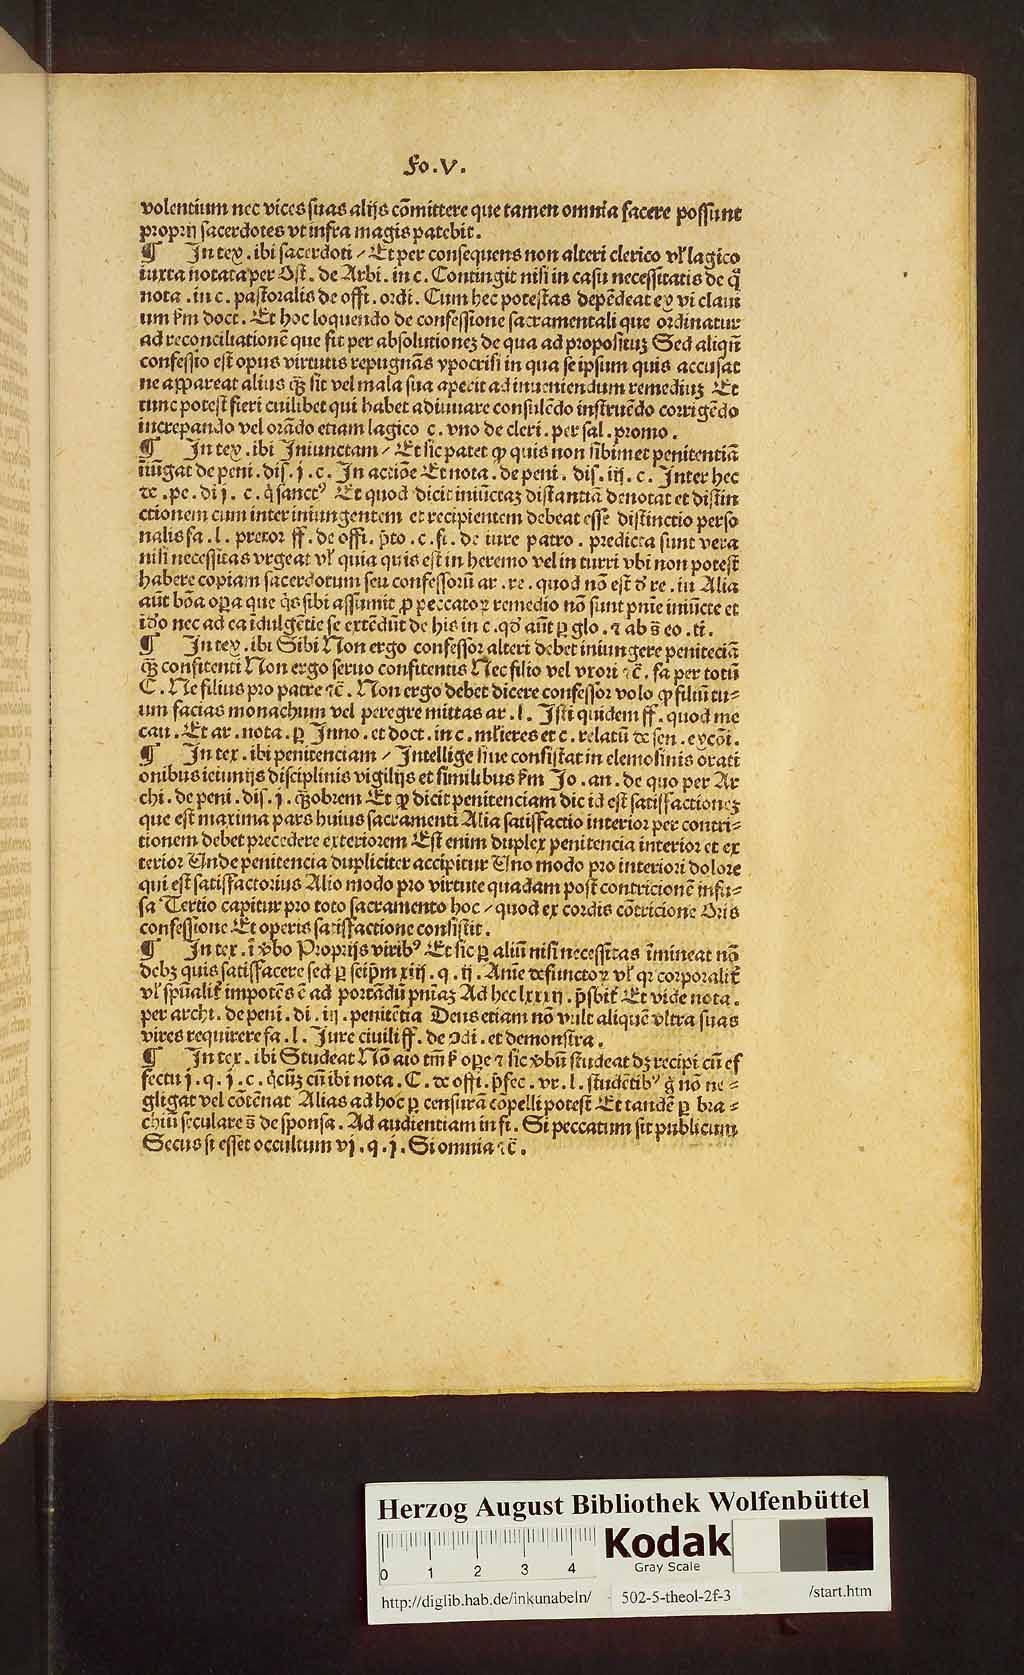 Fo.V.
volentium nec vices suas alijs cōmittere que tamen omnia facere possunt
proprij sacerdotes vt infra magis patebit.
¶ In tex. ibi sacerdoti / Et per consequens non alteri clerico vl' lagico
iuxta notata per Ost. de Arbi. in c. Contingit nisi in casu necessitatis de q̄
nota. in c. pastoralis de offi. ordi. Cum hec potestas depēdeat ex vi claui
um s'm doct. Et hoc loquendo de confessione sacramentali que ordinatur
ad reconciliationē que fit per absolutionez de qua ad propositūz Sed aliqn̄
confessio est opus virtutis repugnās ypocrisi in qua se ipsum quis accusat
ne appareat alius q̄z sit vel mala sua aperit ad inueniendum remediuz Et
tunc potest fieri cuilibet qui habet adiuuare consulēdo instruēdo corrigēdo
increpando vel orādo etiam lagico c. vno de cleri. per sal. promo.
¶ In tex. ibi Iniunctam / Et sic patet ꝙ quis non sibimet penitentiā
iniūgat de peni. dis. j. c. In actiōe Et nota. de peni. dis. iij. c. Inter hec
⁊c. pe. di j. c. q̄ sanctꝰ Et quod dicit iniūctaz distantiā denotat et distin
ctionem cum inter iniungentem et recipientem debeat esse distinctio perso
nalis fa. l. pretor ff. de offi. p̄to. c. fi. de iure patro. predicta sunt vera
nisi necessitas vrgeat vl' quia quis est in heremo vel in turri vbi non potest
habere copiam sacerdotum seu confessorū ar. re. quod nō est d' re. iu Alia
aūt bōa oꝑa que q̄s sibi assumit ꝓ peccatoꝝ remedio nō sunt pn̄ie iniūcte et
iō nec ad ea īdulgētie se extēdūt de his in c. qđ aūt ꝑ glo. ⁊ ab s̄ eo. ti.
¶ In tex. ibi Sibi Non ergo confessor alteri debet iniungere peniteciā
q̄z confitenti Non ergo seruo confitentis Nec filio vel vxori ⁊c̄. fa per totū
C. Ne filius pro patre ⁊c̄. Non ergo debet dicere confessor volo ꝙ filiū tu=
um facias monachum vel peregre mittas ar. l. Isti quidem ff. quod me
cau. Et ar. nota. ꝑ Inno. et doct. in c. ml'ieres et c. relatū de sen. excōi.
¶ In tex. ibi penitenciam / Intellige siue consistat in elemosinis orati
onibus ieiunijs disciplinis vigilijs et similibus s'm Jo. an. de quo per Ar
chi. de peni. dis. j. q̄obrem Et ꝙ dicit penitenciam dic id est satisfactionez
que est maxima pars huius sacramenti Alia satisfactio interior per contri=
tionem debet precedere exteriorem Est enim duplex penitencia interior et ex
terior Unde penitencia dupliciter accipitur Uno modo pro interiori dolore
qui est satisfactorius Alio modo pro virtute quadam post contricionē infu=
sa Tertio capitur pro toto sacramento hoc / quod ex cordis cōtricione Oris
confessione Et operis satisfactione consistit.
¶ In tex. ī v'bo Proprijs viribꝰ Et sic ꝑ aliū nisi necessitas īmineat nō
debz quis satisfacere sed ꝑ seip̄m xiij. q. ij. Anīe defunctoꝝ vl' qr corporalit'
vl' spūalit' impotēs ē ad portādū pn̄iaz Ad hec lxxxij. p̄sbit' Et vide nota.
per archi. de peni. di. iij. penitētia Deus etiam nō vult aliquē vltra suas
vires requirere fa. l. Iure ciuili ff. de ꝯdi. et demonstra.
¶ In tex. ibi Studeat Nō aio tm̄ s' ope ⁊ sic v'bū studeat dz recipi cū ef
fectu j. q. j. c. q̄cūz cū ibi nota. C. de offi. p̄fec. vr. l. studētibꝰ g̊ nō ne=
gligat vel cōtēnat Alias ad hoc ꝑ censurā cōpelli potest Et tandē ꝑ bra=
chiū seculare s̄ de sponsa. Ad audientiam in fi. Si peccatum sit publicum
Secus si esset occultum vj. q. j. Si omnia ⁊c̄.
Herzog August Bibliothek Wolfenbüttel
0 1 2 3 4
Kodak
Gray Scale
http://diglib.hab.de/inkunabeln/ 502-5-theol-2f-3 /start.htm